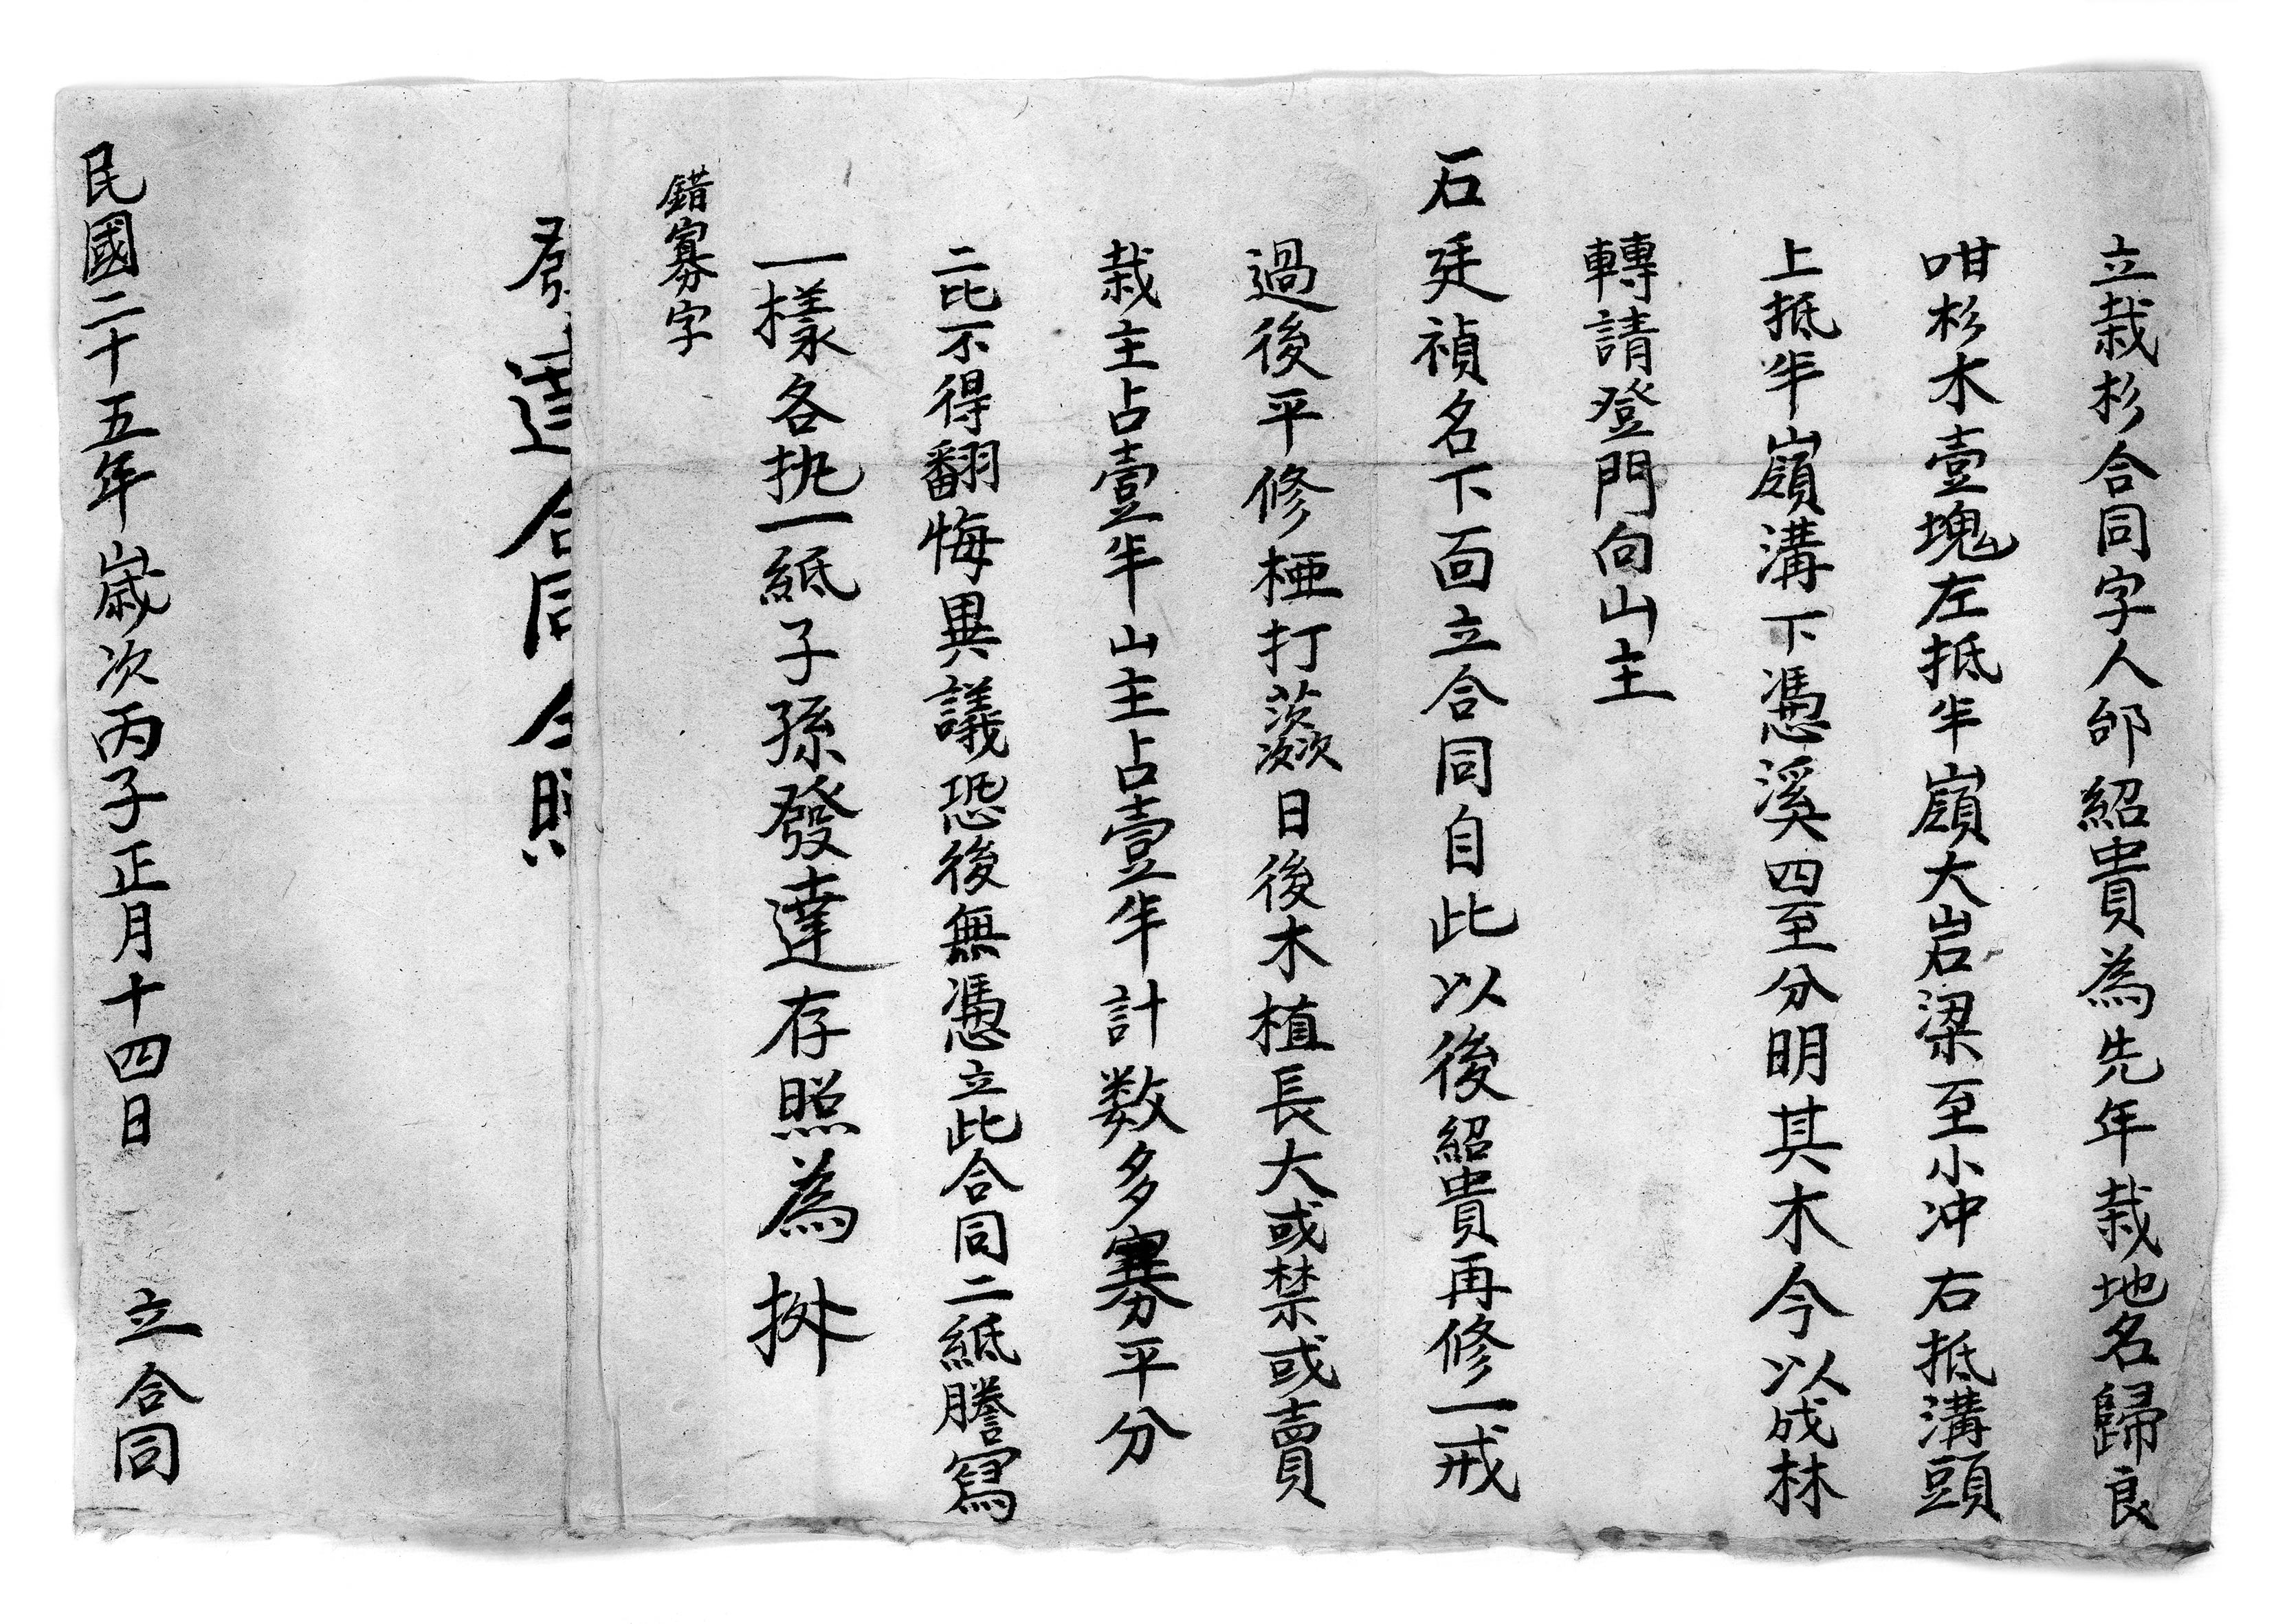 立栽杉合同字人邰紹貴為先年栽地名歸良
咁杉木壹塊左抵半嶺大岩梁至小冲右抵溝頭
上抵半嶺溝下憑溪四至分明其木今以成林
轉請登門向山主
石廷禎名下面立合同自此以後紹貴再修一戒
過後平修椏打茨日後木植長大或禁或賣
栽主占壹半山主占壹半計数多寡平分
二比不得翻悔異議恐後無憑立此合同二紙謄寫
一樣各执一紙子孫發達存照為㨿
錯寡字
發達合同今照
民國二十五年歲次丙子正月十四日 立合同